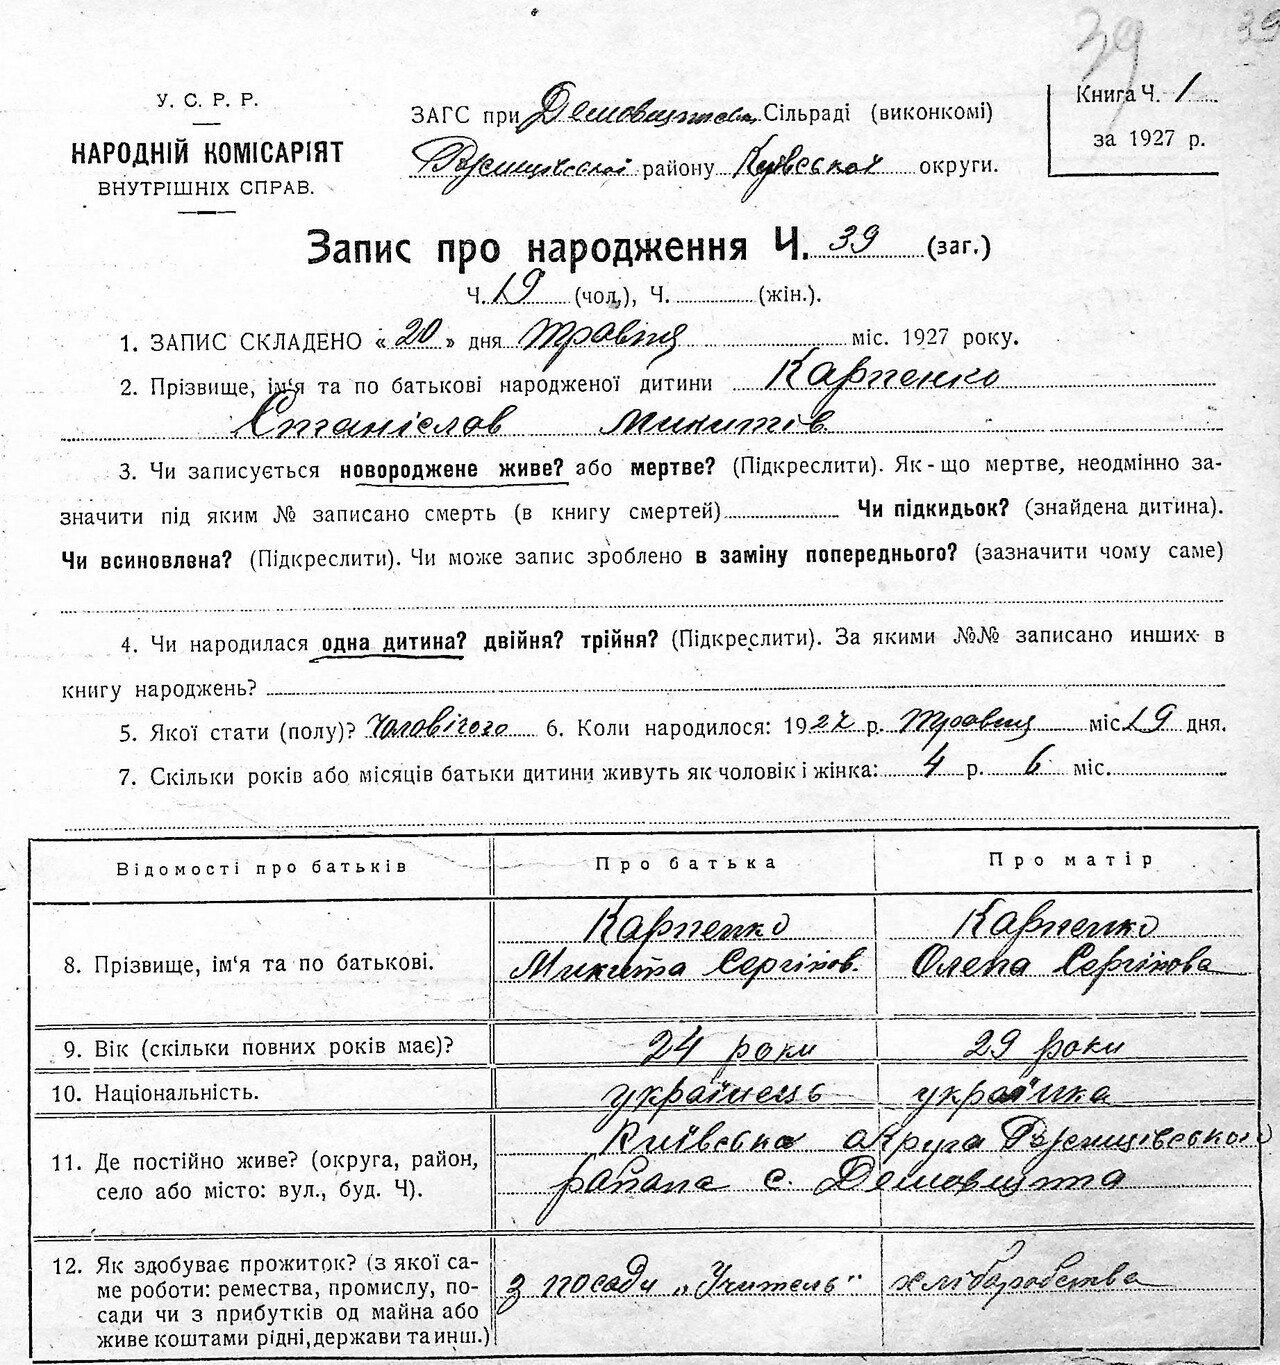 39 39
У. С. Р. Р.
НАРОДНІЙ КОМІСАРІЯТ
ВНУТРІШНІХ СПРАВ.
ЗАГС при Демовщинській Сільраді (виконкомі)
Ржищівської району Київської округи.
Книга Ч. 1
за 1927 р.
Запис про народження Ч. 39 (заг.)
Ч. 19 (чол.), Ч. (жін.).
1. ЗАПИС СКЛАДЕНО « 20 » дня травня міс. 1927 року.
2. Прізвище, ім‘я та по батькові народженої дитини Карпенко
Станіслав Микитів
3. Чи записується новороджене живе? або мертве? (Підкреслити). Як-що мертве, неодмінно за-
значити під яким № записано смерть (в книгу смертей) Чи підкидьок? (знайдена дитина).
Чи всиновлена? (Підкреслити). Чи може запис зроблено в заміну попереднього? (зазначити чому саме)
4. Чи народилася одна дитина? двійня? трійня? (Підкреслити). За якими №№ записано инших в
книгу народжень?
5. Якої стати (полу)? Чоловічого 6. Коли народилося: 1927 р. травня міс. 19 дня.
7. Скільки років або місяців батьки дитини живуть як чоловік і жінка: 4 р. 6 міс.
Відомості про батьків Про батька Про матір
8. Прізвище, ім‘я та по батькові. Карпенко Микита Сергіїов. Карпенко Олена Сергіїова
9. Вік (скільки повних років має)? 24 роки 29 роки
10. Національність. українець українка
11. Де постійно живе? (округа, район, Київська округа Ржищівського
село або місто: вул., буд. Ч). района с. Демовщина
12. Як здобуває прожиток? (з якої са-
ме роботи: ремества, промислу, по- з посади „Учитель“ хліборобства
сади чи з прибутків од майна або
живе коштами рідні, держави та инш.)